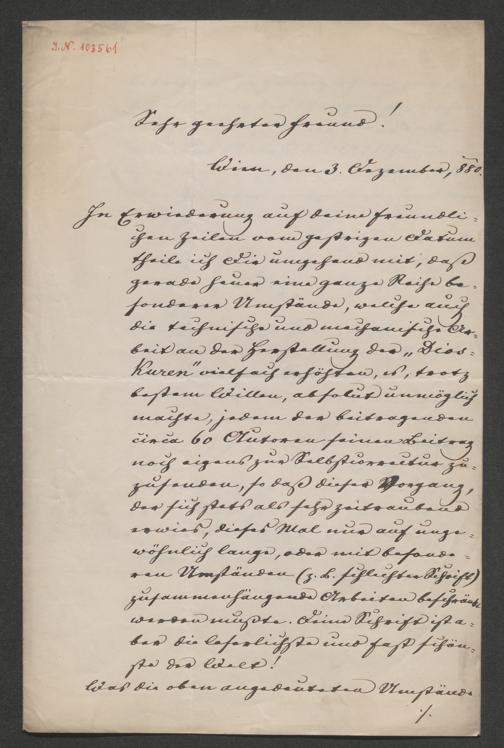 J.N. 103561
Sehr geehrter Freund!
Wien, den 3. Dezember, 880.
In Erwiederung auf deine freundli-
chen Zeilen vom gestrigen Datum
theile ich Dir umgehend mit, daß
gerade heuer eine ganze Reihe be-
sonderer Umstände, welche auch
die technische und mechanische Ar-
beit an der Herstellung der „Dios-
kuren" vielfach erhöhten, es, trotz
bestem Willen, absolut unmöglich
machte, jedem der beitragenden
circa 60 Autoren seinen Beitrag
noch eigens zur Selbstcorrectur zu-
zusenden, so daß dieser Vorgang,
der sich stets als sehr zeitraubend
erwies, dieses Mal nur auf unge-
wöhnlich lange, oder mit besonde-
ren Umständen (z. B. schlechter Schrift)
zusammenhängende Arbeiten beschränkt
werden mußte. Deine Schrift ist a-
ber die leserlichste und fast schön-
ste der Welt!
Was die oben angedeuteten Umstände
./.